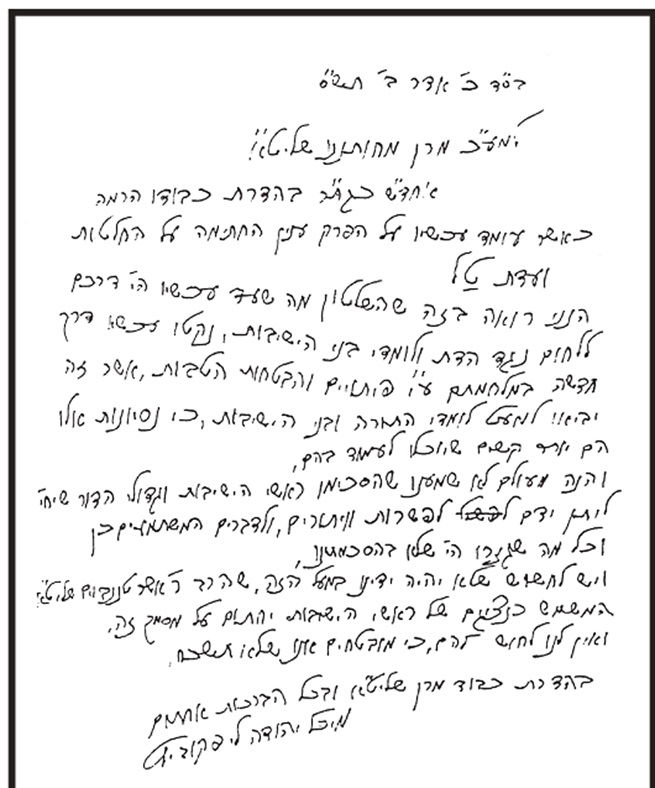 בס"ד כ' אדר ב' תש"ס
למע"כ מרן מחותננו שליט"א!
אחדש"ה כגת"ר בהדרת כבודו הרמה
כאשר עומד עכשיו על הפרק ענין החתמה על החלטות
ועדת טל
הנני רואה בזה שהשלטון מה שעד עכשיו הי' דרכם
ללחום נגד הדת ולומדי בני הישיבות, נקטו עכשיו דרך
חדשה במלחמתם ע"י פיתויים והבטחות הטבות, אשר זה
יביא למעט לומדי התורה ובני הישיבות, כי נסיונות אלו
הם יותר קשים שיוכלו לעמוד בהם,
והנה מעולם לא שמענו שהסכימו ראשי הישיבות וגדולי הדור שיחי'
ליתן ידם לפשרות וויתורים, ולדברים המשתמעים כן
וכל מה שגזרו הי' שלא בהסכמתנו,
ויש לחשוש שלא יהיה ידינו במעל הזה, שהרב ר' אשר טננבוים שליט"א
המשמש כנציגם של ראשי הישיבות יחתום על מסמך זה,
ואין לנו לחוש להם, כי מובטחים אנו שלא תשכח.
בהדרת כבוד מרן שליט"א ובכל הברכות אחתום
מיכל יהודה ליפקוביץ